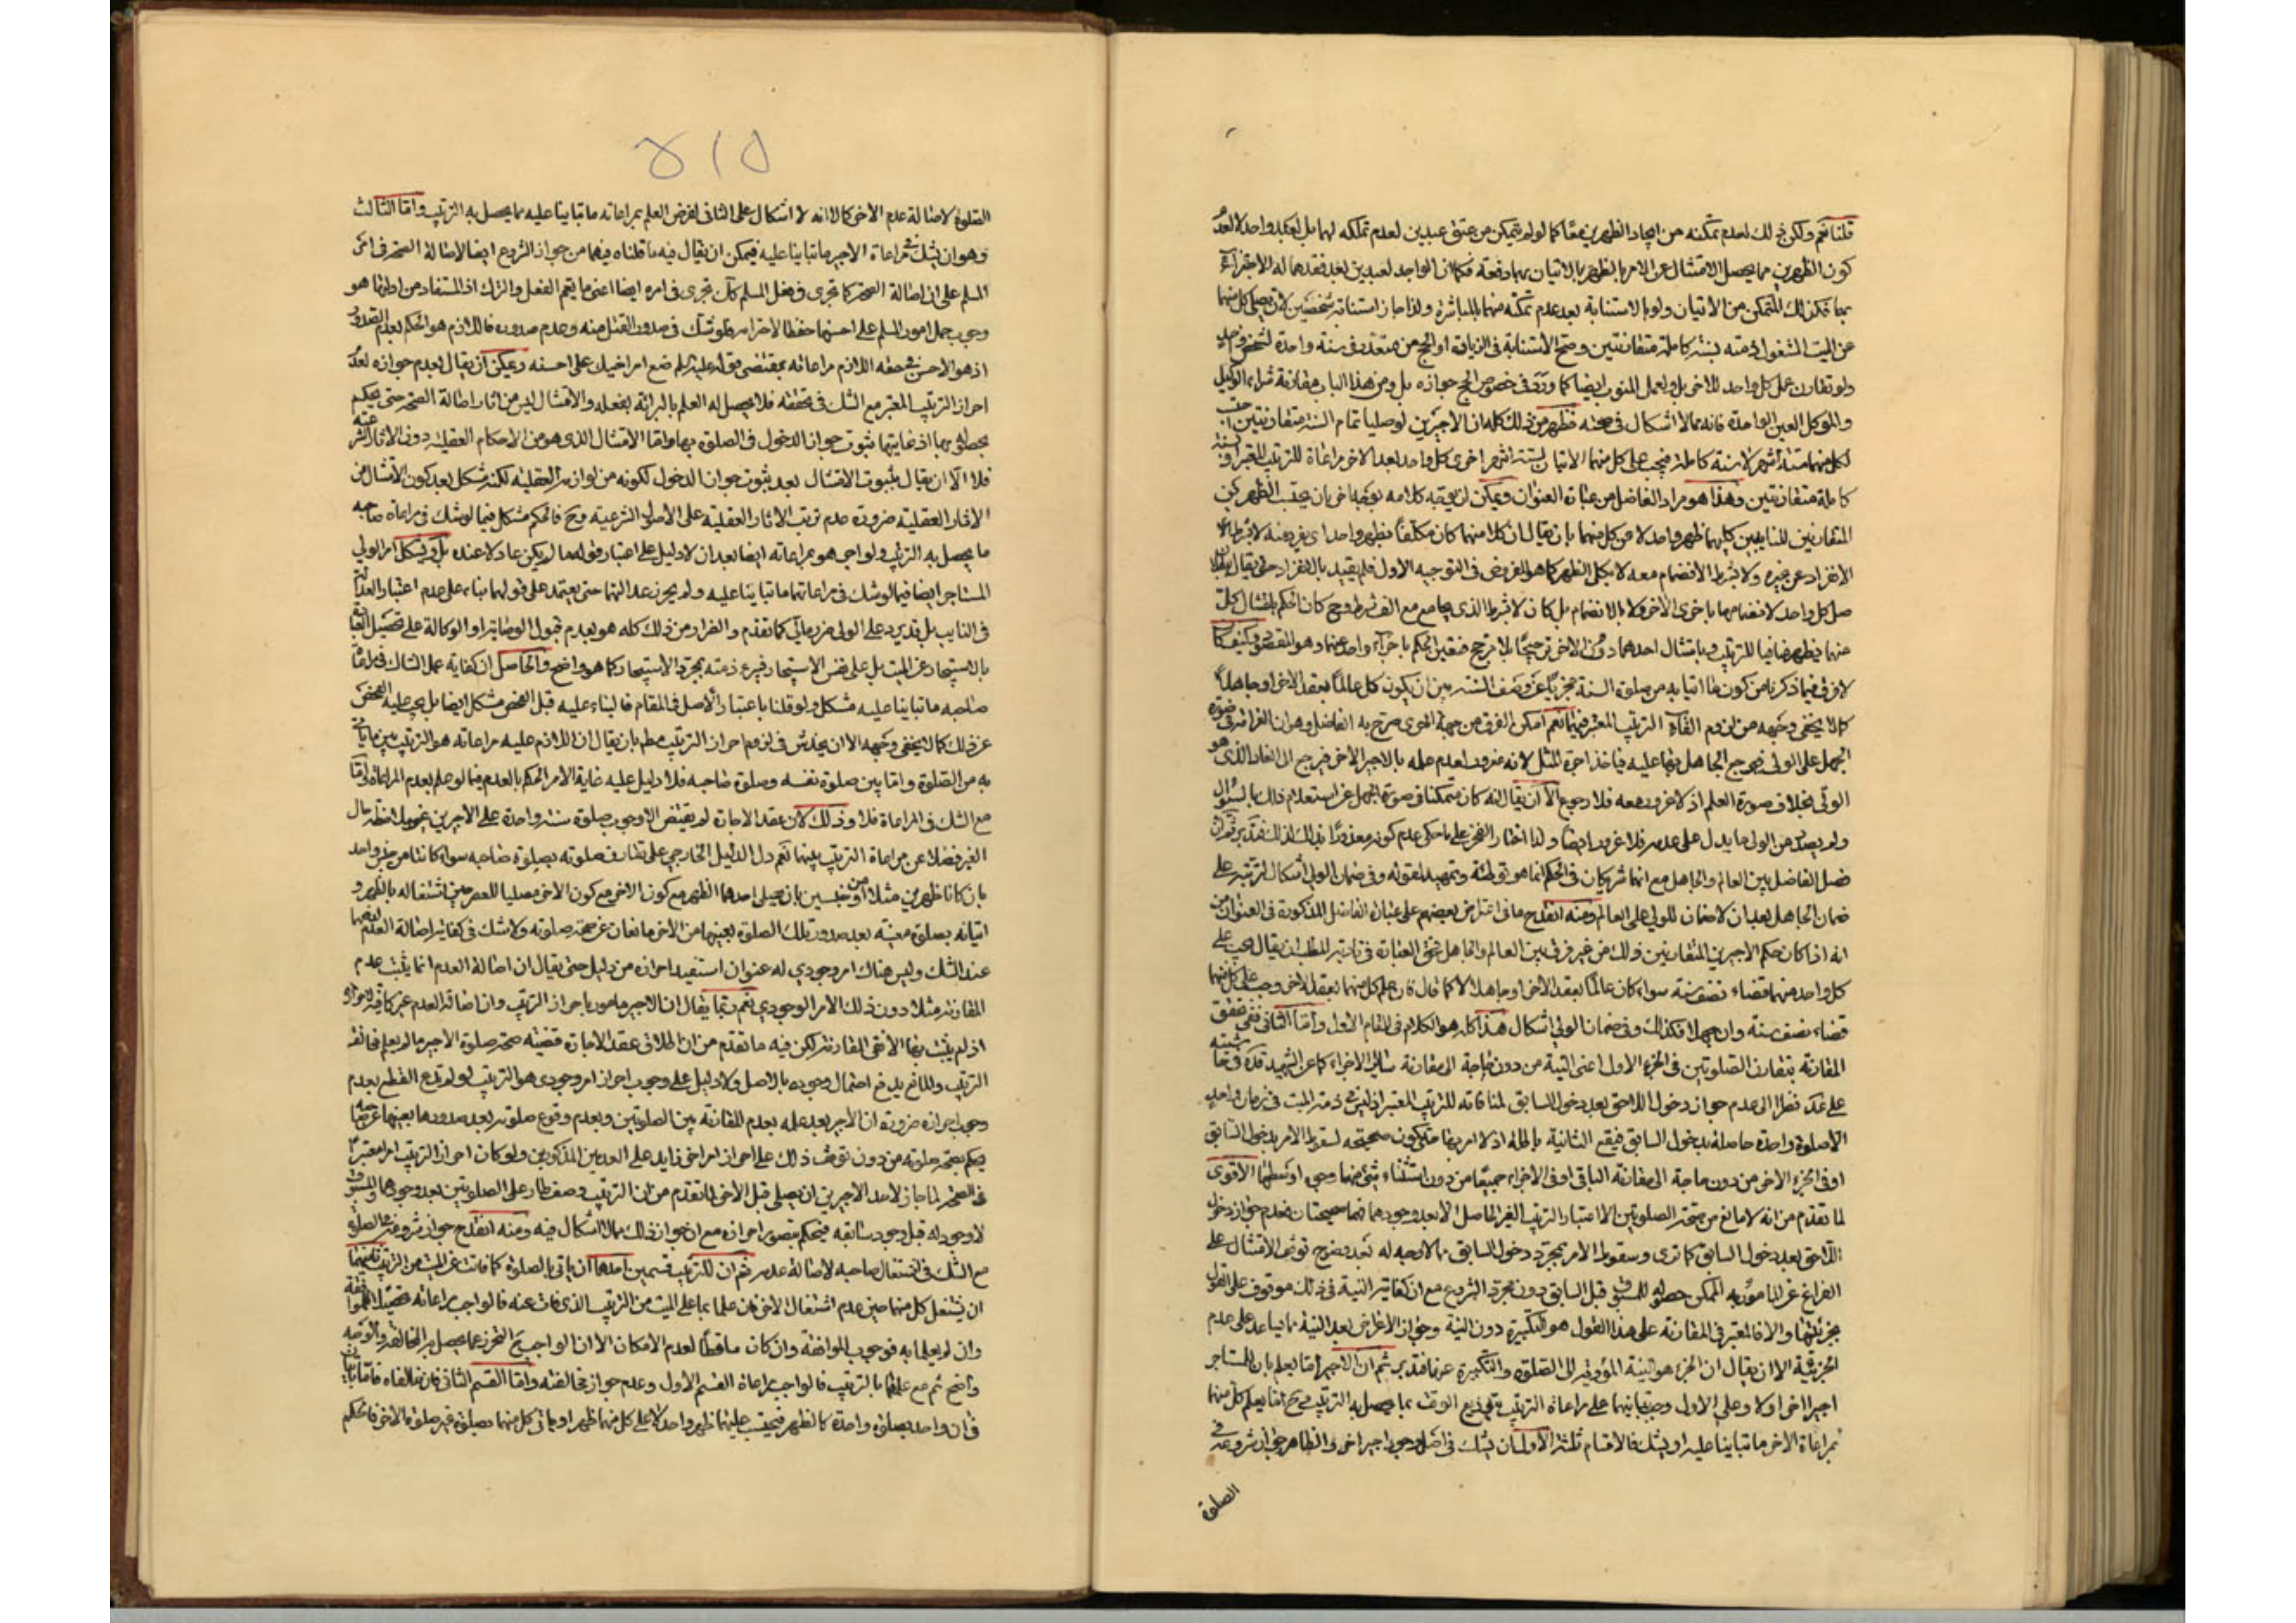 قلنا نعم ولكن ذلك لعدم تمكنه من ايجاد الظهرين معًا كما لو لم يتمكن من عتق عبدين لعدم تملكه لهما بل لعبد واحد لا لعدم
كون الظهرين مما يحصل الامتثال عن الامر بالظهر بالاتيان بهما دفعة فكما ان الواجد لعبدين بعد فقدهما له الاجتزاء
بهما فكذلك المتمكن من الاتيان ولو بالاستنابة بعد عدم تمكنه منهما بالمباشرة ولذا جاز استنابة شخصين لان يصلي كل منهما
عن الميت المشغول ذمته بسنة كاملة متقارنتين وصح الاستنابة في الزيارة او الحج من متعدد في سنة واحدة لشخص واحد
ولو تقارن عمل كل واحد للاخر بل ولعمل المنوب ايضا كما ورد في خصوص الحج جوازه بل ومن هذا الباب مقارنة شراء الوكيل
والموكل العين الواحدة فانه مما لا اشكال في صحته فظهر من ذلك كله ان الاجيرين لو صليا تمام السنة متقارنتين
لكل منهما ستة اشهر لا سنة كاملة فيجب على كل منهما الاتيان بستة اشهر اخرى كل واحد بعد الاخر مراعاة للترتيب المعتبر
كاملة متقارنتين وهذا هو مراد الفاضل من عبارة العنوان ويمكن ان يوجه كلامه بوجه اخر بان يحتسب الظهرين
المتقارنين للنايبين كليهما ظهر واحد لا من كل منهما بان يقال ان كلا منهما كان مكلفا بظهر واحد
الانفراد عن غيره ولا بشرط الانضمام معه لا بكل الظهر كما هو المفروض في التوجيه الاول فلم يقيد بالانفراد حتى يقال
صل كل واحد لانضمامها باخرى الاخر ولا بالانضمام بل كان لا بشرط الذي يجامع مع الف شرط وح كان الحكم بامتثال كل
منهما بظهر منافيا للترتيب وبامتثال احدهما دون الاخر ترجيحًا بلا مرجح فتعين الحكم باجزاء واحد منهما وهو المقصود
لا فرق فيما ذكرنا من كون ما اتيا به من صلوة السنة مجزيًا عن نصف السنة بين ان يكون كل عالمًا بعقد الاخر او جاهلًا
كما لا يخفى وجهه من لزوم الترتيب المعتبر فيهما نعم امكن الفرق من جهة اخرى صرح به الفاضل وهو ان الغرامة في صورة
الجهل على الولي فيرجع الجاهل منهما عليه فياخذ اجرة المثل لانه مغرور لعدم علمه بالاجير الاخر فيرجع الى الغار الذي هو
الولي بخلاف صورة العلم اذ لا غرور معه فلا رجوع الا ان يقال انه كان متمكنا في صورة الجهل عن استعلام ذلك بالسؤال
ولم يصدر من الولي ما يدل على عدمه فلا غرور ايضًا ولذا اختار الفخر على ما حكي عدم كونه معذورًا بذلك
فصل الفاضل بين العالم والجاهل مع انهما شريكان في الحكم انما هو توطئة وتمهيد لقوله وفي ضمان الولي اشكال لترتبه على
ضمان الجاهل بعد ان لا ضمان للولي على العالم ومنه انقدح ما في اعتراض بعضهم على عبارة الفاضل المذكورة في العنوان من
انه اذا كان حكم الاجيرين المتقارنين ذلك من غير فرق بين العالم والجاهل فحق العبارة في تادية المطلب ان يقال يجب على
كل واحد منهما قضاء نصف سنة سواء كان عالمًا بعقد الاخر او جاهلا لا كما قال فان علم كل منهما بعقد الاخر وجب على كل منهما
قضاء نصف سنة وان جهلا فكذلك وفي ضمان الولي اشكال هذا كله هو الكلام في المقام الاول واما الثاني ففي تحقق
المقارنة بتقارن الصلوتين في الجزء الاول اعني النية من دون حاجة الى مقارنة سائر الاجزاء كما عن الشهيد قده في حاشيته
على عد نظرا الى عدم جواز دخول اللاحق بعد دخول السابق لمنافاته للترتيب المعتبر اذ ليس في ذمة الميت في زمان واحد
الا صلوة واحدة حاصلة بدخول السابق فيقع الثانية باطلة اذ لا امر بها حتى يكون صحيحة لسقوط الامر بدخول السابق
او في الجزء الاخر من دون حاجة الى مقارنة الباقي او في الاجزاء جميعًا من دون استثناء شيء منها وجوه اوسطها الاقوى
لما تقدم من انه لا مانع من صحة الصلوتين الا اعتبار الترتيب الغير الحاصل الا بعد وجودهما فهما صحيحتان فعدم جواز دخول
اللاحق بعد دخول السابق كما ترى وسقوط الامر بمجرد دخول السابق مما لا وجه له بعد وضوح توقف الامتثال على
الفراغ عن المامور به الممكن حصوله للمسبوق قبل السابق دون مجرد الشروع مع ان كفاية النية في ذلك موقوف على القول
بجزئيتها والا فالمعتبر في المقارنة على هذا القول هو التكبيرة دون النية وجواز الاعراض بعد النية مما يساعد على عدم
الجزئية الا ان يقال ان الجزء هو النية المؤدية الى الصلوة والتكبيرة عرفا فتدبر ثم ان الاجير اما يعلم بان للمستاجر
اجيرا اخر اولا وعلى الاول وجب بنائهما على مراعاة الترتيب بتوزيع الوقت بما يحصل به الترتيب وح اما يعلم كل منهما
بمراعاة الاخر ما تبانيا عليه او يشك فالاقسام ثلثة الاول ان يشك في اصل وجود اجير اخر والظاهر جواز شروعه في
الصلوة
۵۱۵
الصلوة لاصالة عدم الاخر كما لا اشكال على الثاني لفرض العلم بمراعاته ما تبانيا عليه مما يحصل به الترتيب واما الثالث
وهو ان يشك في مراعاة الاجير ما تبانيا عليه فيمكن ان يقال فيه ما قلناه فيهما من جواز الشروع ايضا لاصالة الصحة في امر
المسلم على ان اصالة الصحة كما تجري في فعل المسلم كك تجري في امره ايضا اعني ما يعم الفعل والترك اذ المستفاد من ادلتها هو
وجوب حمل امور المسلم على احسنها حفظا لاحترامه فلو شك في صدور القتل منه وعدم صدوره فاللازم هو الحكم بعدم الصدور
اذ هو الاحسن في حقه اللازم مراعاته بمقتضى قوله عليه السلم ضع امر اخيك على احسنه ويمكن ان يقال بعدم جوازه لعدم
احراز الترتيب المعتبر مع الشك في تحققه فلا يحصل له العلم بالبرائة بفعله والامتثال ليس من اثار اصالة الصحة حتى يحكم
بحصوله بها اذ غايتها ثبوت جواز الدخول في الصلوة بها واما الامتثال الذي هو من الاحكام العقلية دون الاثار الشرعية
فلا الا ان يقال بثبوت الامتثال بعد ثبوت جواز الدخول لكونه من لوازمه العقلية لكنه مشكل بعد كون الامتثال من
الاثار العقلية ضرورة عدم ترتب الاثار العقلية على الاصول الشرعية وح فالحكم مشكل فيما لو شك في مراعاة صاحبه
ما يحصل به الترتيب ولو اخبر هو بمراعاته ايضا بعد ان لا دليل على اعتبار قوله ما لم يكن عادلا عنده بل ويشكل امر الولي
المستاجر ايضا فيما لو شك في مراعاتهما ما تبانيا عليه ولم يحرز عدالتهما حتى يعتمد على قولهما بناء على عدم اعتبار العدالة
في النايب بل قد يرد على الولي كما تقدم والفرار من ذلك كله هو بعدم قبول الوصاية او الوكالة على تحصيل النيابة
بالاستيجار عن الميت بل على نفس الاستيجار فيبرء ذمته بمجرد الاستيجار كما هو واضح والحاصل ان كفاية عمل الشاك في مراعاة
صاحبه ما تبانيا عليه مشكل ولو قلنا باعتبار الاصل في المقام فالبناء عليه قبل الفحص مشكل ايضا بل يجب عليه الفحص
عن ذلك كما لا يخفى وجهه الا ان يخدش في لزوم احراز الترتيب مطلقا بان يقال ان اللازم عليه مراعاته هو الترتيب بين ما ياتي
به من الصلوة واما بين صلوة نفسه وصلوة صاحبه فلا دليل عليه غاية الامر الحكم بالعدم فيما لو علم بعدم المراعاة واما
مع الشك في المراعاة فلا وذلك لان عقد الاجارة لم يقتض الا وجوب صلوة سنة واحدة على الاجيرين
الغير فضلا عن مراعاة الترتيب بينهما نعم دل الدليل الخارجي على تقارن صلوته بصلوة صاحبه سواء كانتا من جنس واحد
بان كانا ظهرين مثلا او من جنسين بان يصلي احدهما الظهر مع كون الاخر مصليا للعصر حين اشتغاله بالظهر و
اتيانه بصلوة معينة بعد صدور تلك الصلوة بعينها من الاخر مانعان عن صحة صلوته ولا شك في كفاية اصالة العدم
عند الشك وليس هناك امر وجودي له عنوان استفيد احرازه من دليل حتى يقال ان اصالة العدم انما يثبت عدم
المقارنة مثلا دون ذلك الامر الوجودي نعم ربما يقال ان الاجير مامور باحراز الترتيب وان اصالة العدم غير كافية
اذ لم يثبت بها الا نفي المقارنة لكن فيه ما تقدم من ان اطلاق عقد الاجارة قضيته صحة صلوة الاجير ما لم يعلم مخالفة
الترتيب والمانع يدفع احتمال وجوده بالاصل ولا دليل على وجوب احراز امر وجودي هو الترتيب لو لم ندع القطع بعدم
وجوب احرازه ضرورة ان الاجير بعد علمه بعدم المقارنة بين الصلوتين وبعدم وقوع صلوته بعد صدورها بعينها عن صاحبه
يحكم بصحة صلوته من دون توقف ذلك على احراز امر اخر زايد على العدمين المذكورين ولو كان احراز الترتيب امرا معتبرًا
في الصحة لما جاز لاحد الاجيرين ان يصلي قبل الاخر لما تقدم من ان الترتيب وصف طار على الصلوتين بعد وجودهما
لا وجود له قبل وجود سابقه فيحكم بتصور احرازه مع ان جواز ذلك مما لا اشكال فيه ومنه انقدح جواز شروعه في الصلوة
مع الشك في اشتغال صاحبه لاصالة عدمه ثم ان للترتيب قسمين احدهما ان ياتي بالصلوة كما فاتت عن الميت من الترتيب ثانيهما
ان يشتغل كل منهما حين عدم اشتغال الاخر فان علما بما على الميت من الترتيب الذي فات عنه فالواجب مراعاته
وان لم يعلما به فوجوب الموافقة وان كان ساقطًا لعدم الامكان الا ان الواجب ح التحرز عما يحصل به المخالفة والوجه
واضح ثم مع علمهما بالترتيب فالواجب مراعاة القسم الاول وعدم جواز مخالفته واما القسم الثاني فان خالفاه
في ان واحد بصلوة واحدة كالظهر فيحتسب عليهما ظهر واحد لا على كل منهما ظهر او ياتي كل منهما بصلوة غير صلوة الاخر فالحكم